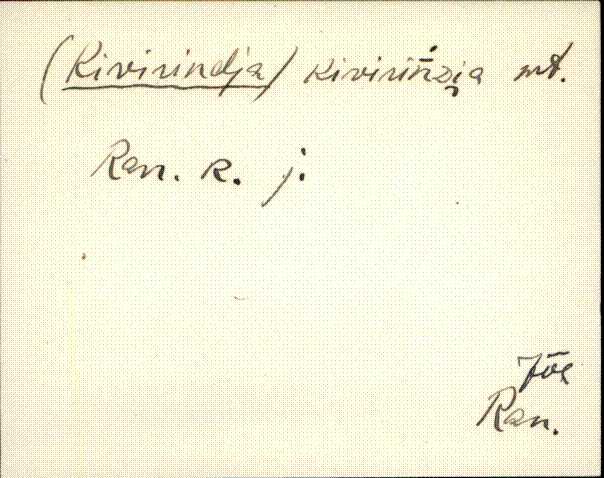 (Kivirindja) kivirińzja mt.
Ran. k. j.
Jõe
Ran.